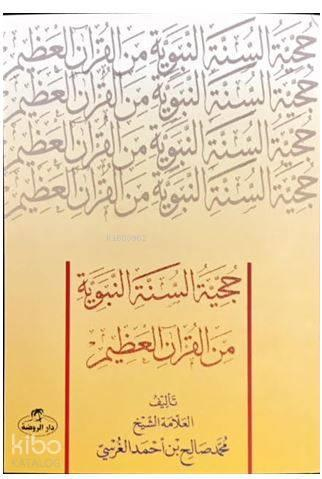 حُجِّيَّةُ السُّنَّةِ النَّبَوِيَّةِ مِنَ القُرْآنِ العَظِيمِ
حُجِّيَّةُ السُّنَّةِ النَّبَوِيَّةِ مِنَ القُرْآنِ العَظِيمِ
حُجِّيَّةُ السُّنَّةِ النَّبَوِيَّةِ مِنَ القُرْآنِ العَظِيمِ
حُجِّيَّةُ السُّنَّةِ النَّبَوِيَّةِ مِنَ القُرْآنِ العَظِيمِ
حُجِّيَّةُ السُّنَّةِ النَّبَوِيَّةِ
مِنَ القُرْآنِ العَظِيمِ
تَأليفُ
العَلّامَة الشَّيْخ
مُحَمَّد صَالِح بْن أَحْمَد الغُرْسِيّ
دار الروضة
kibo
KATALOG